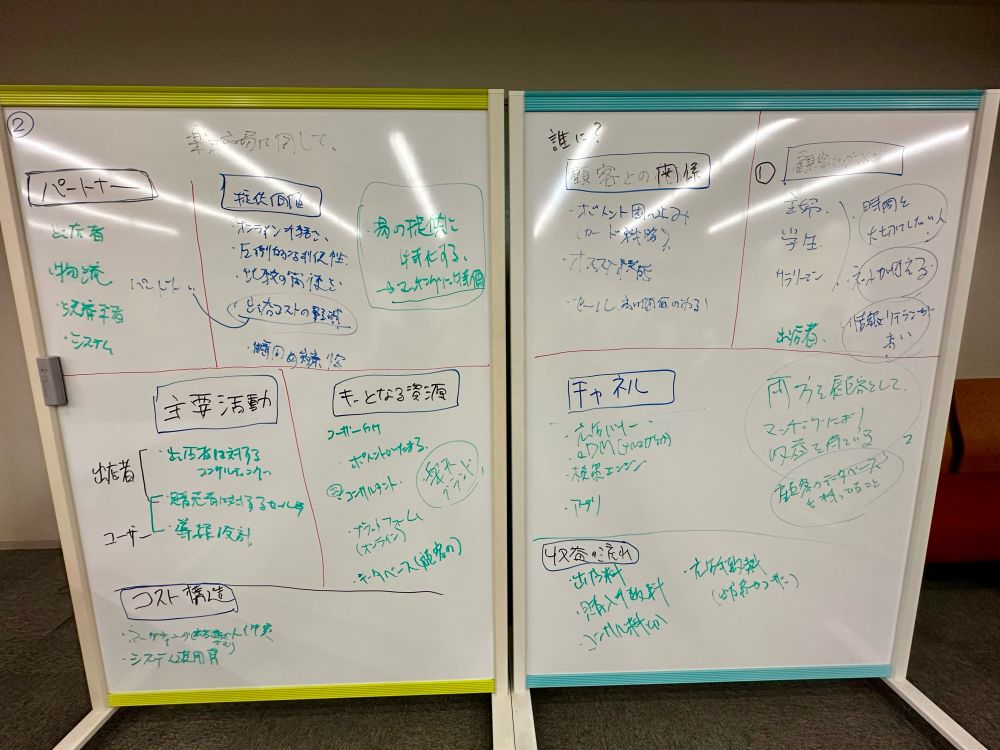 ②
楽天市場に関して、
パートナー
出店者
物流
決済業者
・システム
提供価値
・オンラインで
・圧倒的な利便性
・比較の簡便さ
出店コストの軽減
・時間
場の提供に
特化する。
主要活動
出店者
・出店者に対する
コンサルティング
・購売者に対するセール
ユーザー
・導線設計
キーとなる資源
ユーザー
・ポイントがたまる。
・コンサルタント
・プラットフォーム
(オンライン)
・データベース(顧客の)
楽天
ブランド
コスト構造
・システム運用費
誰に?
顧客との関係
・ポイント囲い込み
(カード戦略)
・カスタマ
・セール
①
顧客セグメント
主婦.
学生.
サラリーマン
出店者.
・時間を
大切にしたい人
ネットが使える.
情報リテラシーが
高い
チャネル
・広告バナー
・DM
・検索エンジン
・アプリ
両方を顧客として.
マッチングにより
収益を得ている
顧客のデータベース
を持ってること
収益の流れ
・出店料
・購入手数料
・コンサル料
・広告手数料